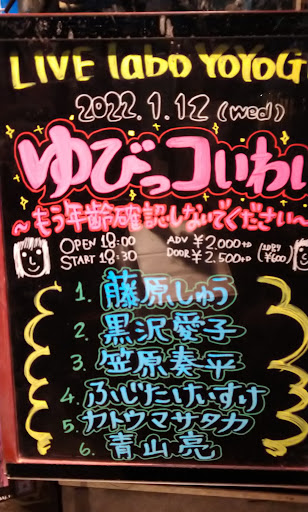 LIVE labo YOYOG
2022.1.12 (wed)
ゆびっコいわい
～もう年齢確認しないでください～
OPEN 18:00 ADV ¥2,000+D
START 18:30 DOOR ¥2,500+D
¥600
1. 藤原しゅう
2. 黒沢愛子
3. 笠原奏平
4. ふじたけいすけ
5. カトウマサタカ
6. 青山亮